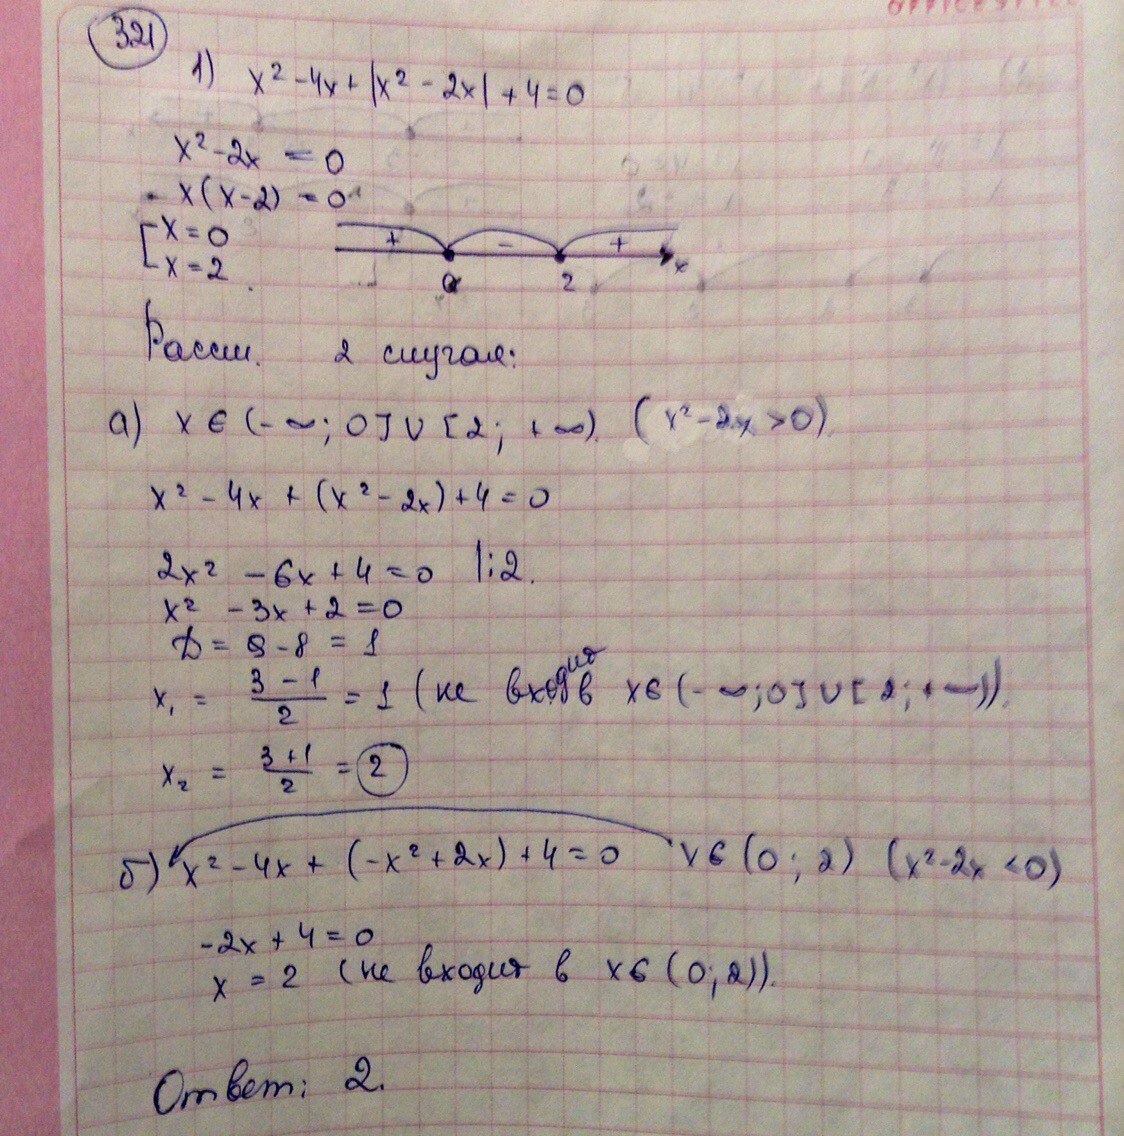 321
1) x² - 4x + |x² - 2x| + 4 = 0
x² - 2x = 0
x(x-2) = 0
x = 0
x = 2
+ - +
0 2 x
Рассм. 2 случая:
а) x ∈ (-∞; 0] ∪ [2; +∞). (x² - 2x > 0).
x² - 4x + (x² - 2x) + 4 = 0
2x² - 6x + 4 = 0 |:2.
x² - 3x + 2 = 0
D = 9 - 8 = 1
x₁ = (3 - 1)/2 = 1 (не входит в x ∈ (-∞; 0] ∪ [2; +∞)).
x₂ = (3 + 1)/2 = 2
б) x² - 4x + (-x² + 2x) + 4 = 0 x ∈ (0; 2) (x² - 2x < 0)
-2x + 4 = 0
x = 2 (не входит в x ∈ (0; 2)).
Ответ: 2.